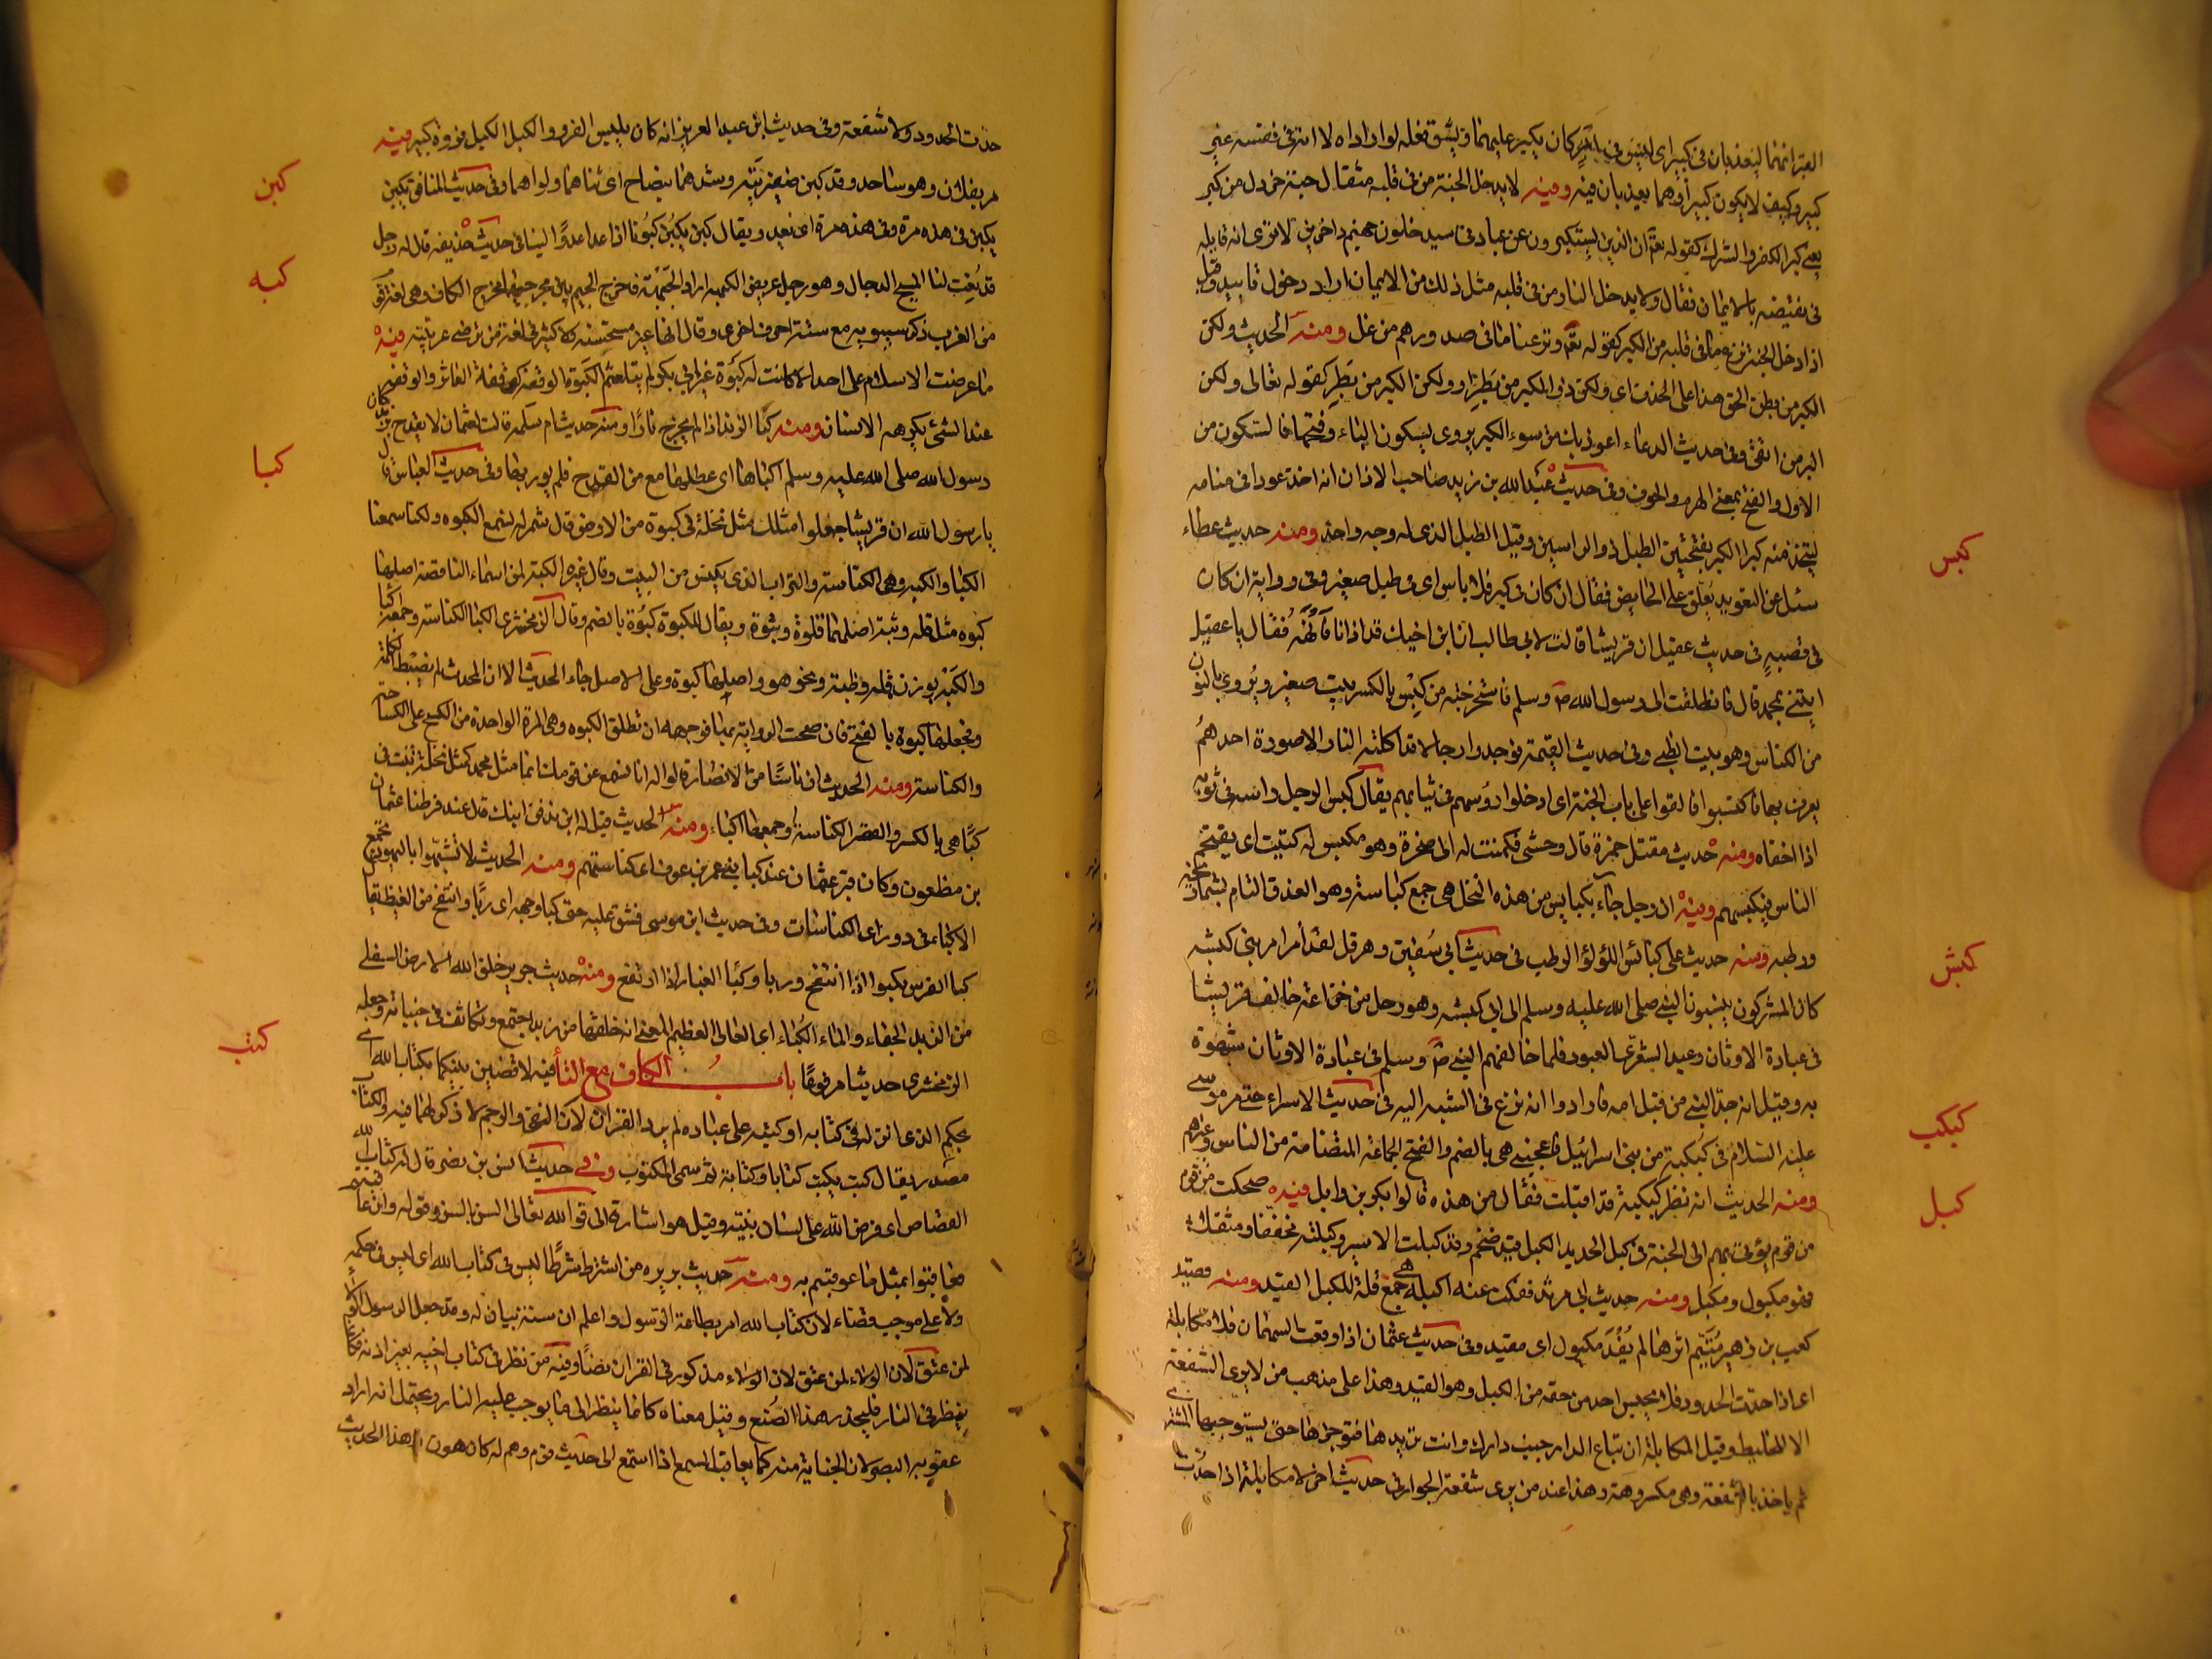 القبرانهما ليعذبان في كبير اي ليس في امر كان يكبر عليهما ويشق فعله لو ارادا ه لا انه في نفسه غير
كبير وكيف لا يكون كبيرا وهما يعذبان فيه ومنه لا يدخل الجنة من في قلبه مثقال حبة خردل من كبر
يعني كبر الكفر والشرك كقوله تعم ان الذين يستكبرون عن عبادتي سيدخلون جهنم داخرين لا تري انه قابله
في نقيضه بالايمان فقال ولا يدخل النار من في قلبه مثل ذلك من الايمان اراد دخول تابيد وقيل
اذا دخل الجنة نزع ما في قلبه من الكبر كقوله تعم ونزعنا ما في صدورهم من غل ومنه الحديث ولكن
الكبر من بطر الحق هذا على الحذف اي ولكن ذو الكبر من بطر او ولكن الكبر من بطر كقوله تعالى ولكن
البر من اتقى وفي حديث الدعاء اعوذ بك من سوء الكبر يروى بسكون الباء وفتحها فالسكون من
الاول والفتح بمعنى الهرم والخرف وفي حديث عبد الله بن زيد صاحب الاذان انه اخذ عودا في منامه
ليتخذ منه كبرا الكبر بفتحتين الطبل ذو الراسين وقيل الطبل الذي له وجه واحد ومنه حديث عطاء
سئل عن التعويذ يعلق على الحايض فقال ان كان في كبر فلا باس اي في طبل صغير وفي رواية ان كان
في قصبة في حديث عقيل ان قريشا قالت لابي طالب ان ابن اخيك قد اذانا فانهه فقال يا عقيل
ايتني بمحمد قال فانطلقت الى رسول الله ص وسلم فاستخرجته من كبس بالكسر بيت صغير ويروى بالنون
من الكناس وهو بيت الظبي وفي حديث القيمة فوجدوا رجالا قد اكلتهم النار الا صورة احدهم
يعرف بها فاكتبسوا فالقوا على باب الجنة اي ادخلوا رؤسهم في ثيابهم يقال كبس الرجل راسه في ثوبه
اذا اخفاه ومنه حديث مقتل حمزة قال وحشي فكمنت له الى صخرة وهو مكبس له كتيت اي يقتحم
الناس فيكبسهم ومنه ان رجلا جاء بكبايس من هذه النخل هي جمع كباسة وهو العذق التام بشماريخه
ورطبه ومنه حديث علي كبائس اللؤلؤ الرطب في حديث ابي سفين وهرقل لقد امر امر بني كبشه
كان المشركون ينسبون النبي صلى الله عليه وسلم الى ابي كبشه وهو رجل من خزاعة خالف قريشا
في عبادة الاوثان وعبد الشعرى العبور فلما خالفهم النبي ص وسلم في عبادة الاوثان شبهوه
به وقيل انه جد النبي من قبل امه فارادوا انه نزع في الشبه اليه في حديث الاسراء حتى مر موسى
عليه السلام في كبكبة من بني اسرائيل فاعجبني هي بالضم والفتح الجماعة المتضامة من الناس وغيرهم
ومنه الحديث انه نظر كبكبة قد اقبلت فقال من هذه قالوا بكر بن وايل فيه ضحكت من قوم
من قوم يؤتى بهم الى الجنة في كبل الحديد الكبل قيد ضخم وقد كبلت الاسير وكبلته مخففا ومثقلا
فهو مكبول ومكبل ومنه حديث ابي مرثد ففكت عنه اكبله هي جمع قلة للكبل القيد ومنه قصيد
كعب بن زهير متيم اثرها لم يفد مكبول اي مقيد وفي حديث عثمان اذا وقعت السهمان فلا مكابلة
اي اذا حدت الحدود فلا يحبس احد من حقه من الكبل وهو القيد وهذا على مذهب من لا يرى الشفعة
الا للخليط وقيل المكابلة ان تباع الدار جنب دارك وانت تريدها فتؤخرها حتى يستوجبها المشتري
ثم ياخذ بالشفعة وهي مكروهة وهذا عند من يرى شفعة الجوار في حديث اخر لا مكابلة اذا حدت
كبس
كبش
كبكب
كبل
حدت الحدود ولا شفعة وفي حديث ابن عبد العزيز انه كان يلبس الفرو والكبل الكبل فروة كبير فيه
مر بفلان وهو ساجد وقد كبن ضفيرتيه وشدهما بنصاح اي ثناهما ولواهما وفي حديث المنافق يكبن
يكبن في هذه مرة وفي هذه مرة اي يعدو ويقال كبن يكبن كبونا اذا عدا عدوا لينا في حديث حذيفه قال له رجل
قد نعت لنا المسيح الدجال وهو رجل عريض الكبهة اراد الجبهة فاخرج الجيم بين مخرجها ومخرج الكاف وهي لغة قوم
من العرب ذكر سيبويه مع ستة احرف اخرى وقال انها غير مستحسنة ولا كثيرة في لغة من ترضى عربيته فيه
ما عرضت الاسلام على احد الا كانت له كبوة غير ابي بكر لم يتلعثم الكبوة الوقفة كوقفة العاثر والوقفة
عند الشئ يكرهه الانسان ومنه كبا الزند اذا لم يخرج نارا ومنه حديث ام سلمه قالت لعثمان لا يقدح بزند كان
رسول الله صلى الله عليه وسلم اكباها اي عطلها مع من القدح فلم يور بها وفي حديث العباس قال
يا رسول الله ان قريشا جعلوا مثلك مثل نخلة في كبوة من الارض قال شمر لم نسمع الكبوه ولكنا سمعنا
الكبا والكبه وهي الكناسة والتراب الذي يكنس من البيت وقال غيره الكبة من اسماء الناقصه اصلها
كبوه مثل قله وثبة اصلهما قلوة وثبوة ويقال للكبوة كبوة بالضم وقال الزمخشري الكبا الكناسة وجمعه اكبا
والكبه بوزن قله وظبة ونحوهم واصلها كبوة وعلى الاصل جاء الحديث الا ان المحدث لم يضبط الكلمة
فجعلها كبوة بالفتح فان صحت الرواية بها فوجهه ان تطلق الكبوه وهي المرة الواحدة من الكسح على الكساحة
والكناسة ومنه الحديث ان ناسا من الانصار قالوا له انا نسمع عن قومك انما مثل محمد كمثل نخلة تنبت في
كبا هي بالكسر والقصر الكناسة وجمعها اكباء ومنه الحديث قيل له اين ندفن ابنك قال عند فرطنا عثمان
بن مظعون وكان قبر عثمان عند كبا بني عمرو بن عوف اي كناستهم ومنه الحديث لا تشبهوا باليهود تجمع
الاكباء في دورها اي الكناسات وفي حديث ابن موسى فشق عليه حتى كبا وجهه اي ربا وانتفخ من الغيظ يقال
كبا الفرس يكبوا اذا انتفخ وربا وكبا الغبار اذا ارتفع ومنه حديث جرير خلق الله الارض السفلى
من الزبد الجفاء والماء الكباء اي العالي العظيم المعنى انه خلقها من زبد اجتمع وتكاثف في جنباته وجعله
الزمخشري حديثا مرفوعا باب الكاف مع التا فيه لاقضين بينكما بكتاب الله اي
بحكم الله عا انزل في كتابه او كتبه على عباده لم يرد القران لان النفي والرجم لا ذكر لهما فيه والكتاب
مصدر يقال كتب يكتب كتابا وكتابة ثم سمي المكتوب وفي حديث انس بن نضر قال له كتاب الله
القصاص اي فرض الله على لسان نبيه وقيل هو اشارة الى قول الله تعالى السن بالسن وقوله وان عاقبتم
فعاقبوا بمثل ما عوقبتم به ومنه حديث بريره من اشترط شرطا ليس في كتاب الله اي ليس في حكمه
ولا على موجب قضاء لان كتاب الله امر بطاعة الرسول واعلم ان سنته بيان له وقد جعل الرسول الولاء
لمن عتق لان الولاء لمن عتق لان الولاء مذكور في القران نصا وفيه من نظر في كتاب اخيه بغير اذنه فكانما
ينظر في النار فليحذر هذا الصنع وقيل معناه كانما ينظر الى ما يوجب عليه النار ويحتمل انه اراد
عقوبه البصر لان الجناية منه كما يعاقب السمع اذا استمع الى حديث قوم وهم له كارهون هذا الحديث
كبن
كبه
كبا
كتب